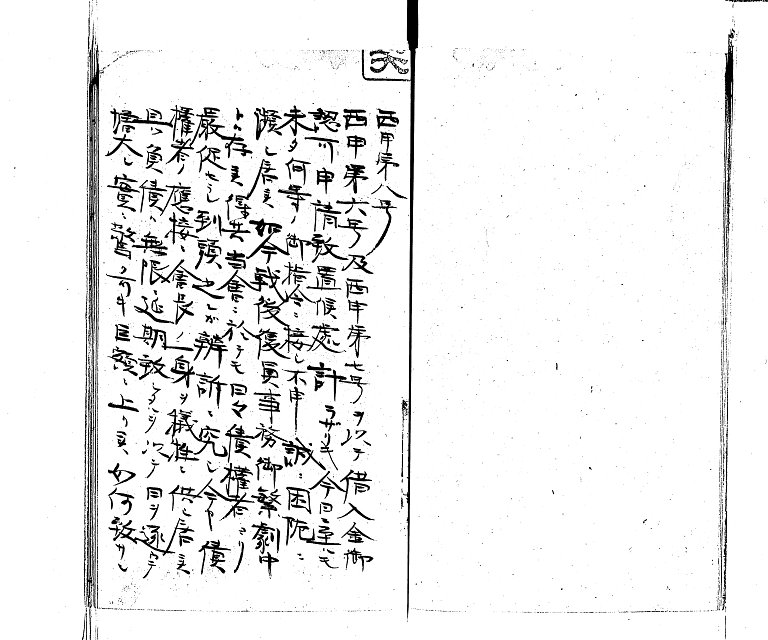 西甲第八号
西申第六号及西申第七号ヲ以テ借入金御
認可申請致置候処計ラザリキ今日ニ至ルモ
未タ何等ノ御指令ニ接シ不申誠ニ困阨ニ
瀕シ居候如今戦後復員事務御繁劇中
トハ存候得共当会ニ於テモ日々債権者ヨリ
厳促セラレ到頭之レガ辨訴ニ究シ今ヤ債
権者ノ應接ニ會長ノ一身ヲ犠牲ニ供シ居候
且ツ負債ハ無限ニ延期致シタルヲ以テ日ヲ逐フテ
増大シ實ニ驚ク可キ巨額ニ上リ候如何致